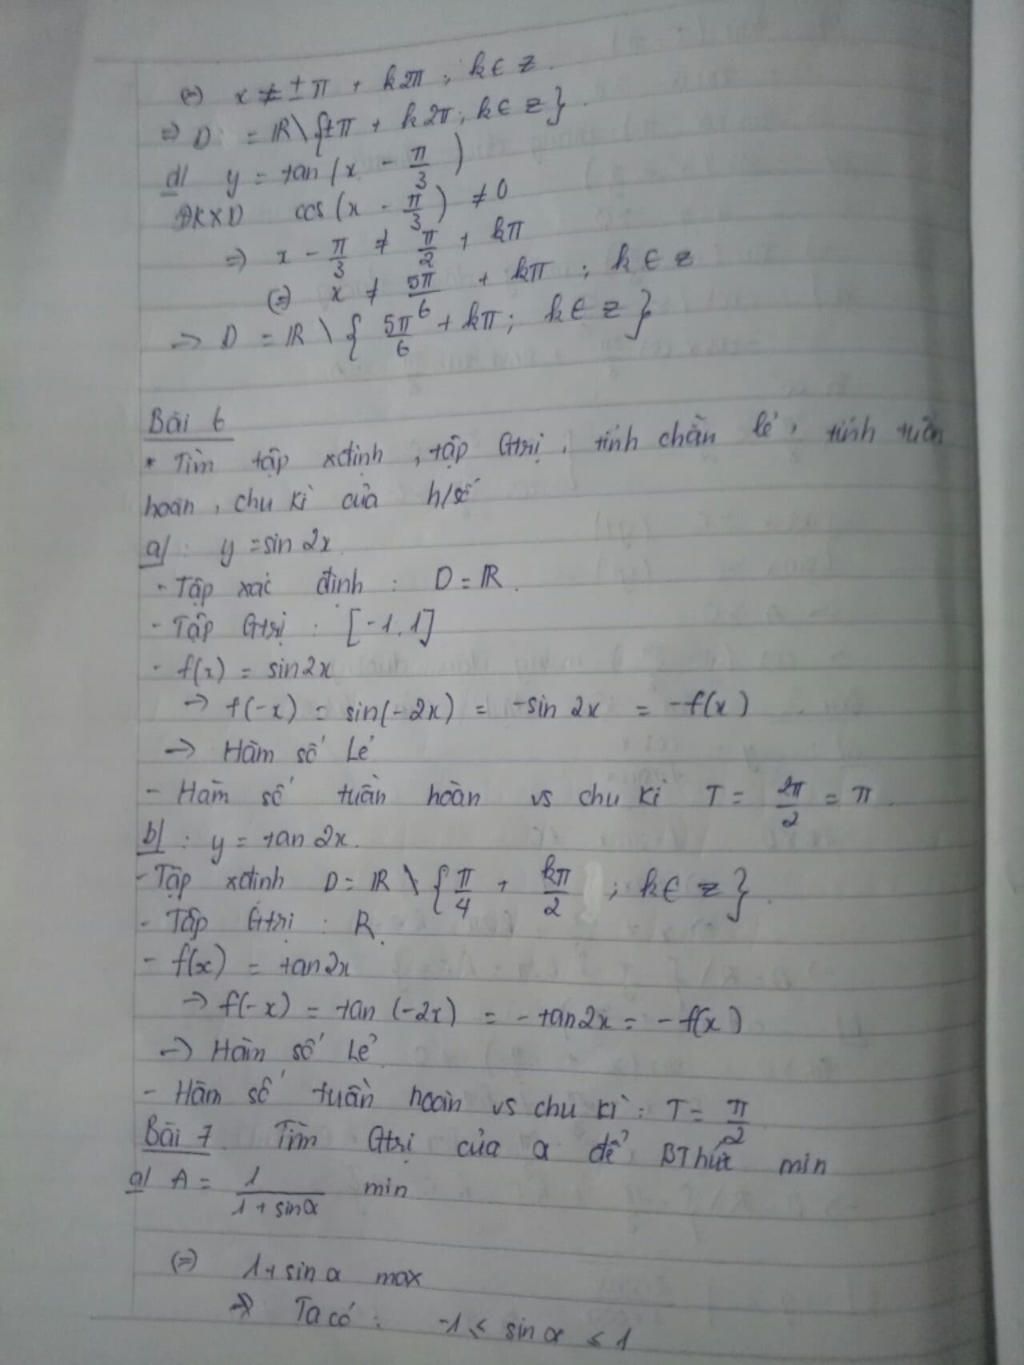 (=) x ≠ ±π + k2π ; k ∈ z.
=> D = R\{±π + k2π ; k ∈ z}.
d/ y = tan(x - π/3)
ĐKXD cos(x - π/3) ≠ 0
=> x - π/3 ≠ π/2 + kπ
(=) x ≠ 5π/6 + kπ ; k ∈ z
-> D = R \ { 5π/6 + kπ ; k ∈ z }
Bài 6
* Tìm tập xđịnh , tập Gtrị , tính chẵn lẻ , tính tuần
hoàn , chu kì của h/số
a/ : y = sin 2x
- Tập xác định : D = R .
- Tập Gtrị : [-1,1]
- f(x) = sin2x
-> f(-x) = sin(-2x) = -sin 2x = -f(x)
-> Hàm số Lẻ
- Hàm số tuần hoàn vs chu kì T = 2π/2 = π .
b/ : y = tan 2x .
- Tập xđịnh D = R \ { π/4 + kπ/2 ; k ∈ z } .
- Tập Gtrị : R .
- f(x) = tan2x
-> f(-x) = tan (-2x) = - tan2x = - f(x)
-> Hàm số Lẻ
- Hàm số tuần hoàn vs chu kì : T = π/2
Bài 7 Tìm Gtrị của α để BThức min
a/ A = 1/(1 + sinα) min
(=) 1 + sin α max
=> Ta có : -1 ≤ sin α ≤ 1